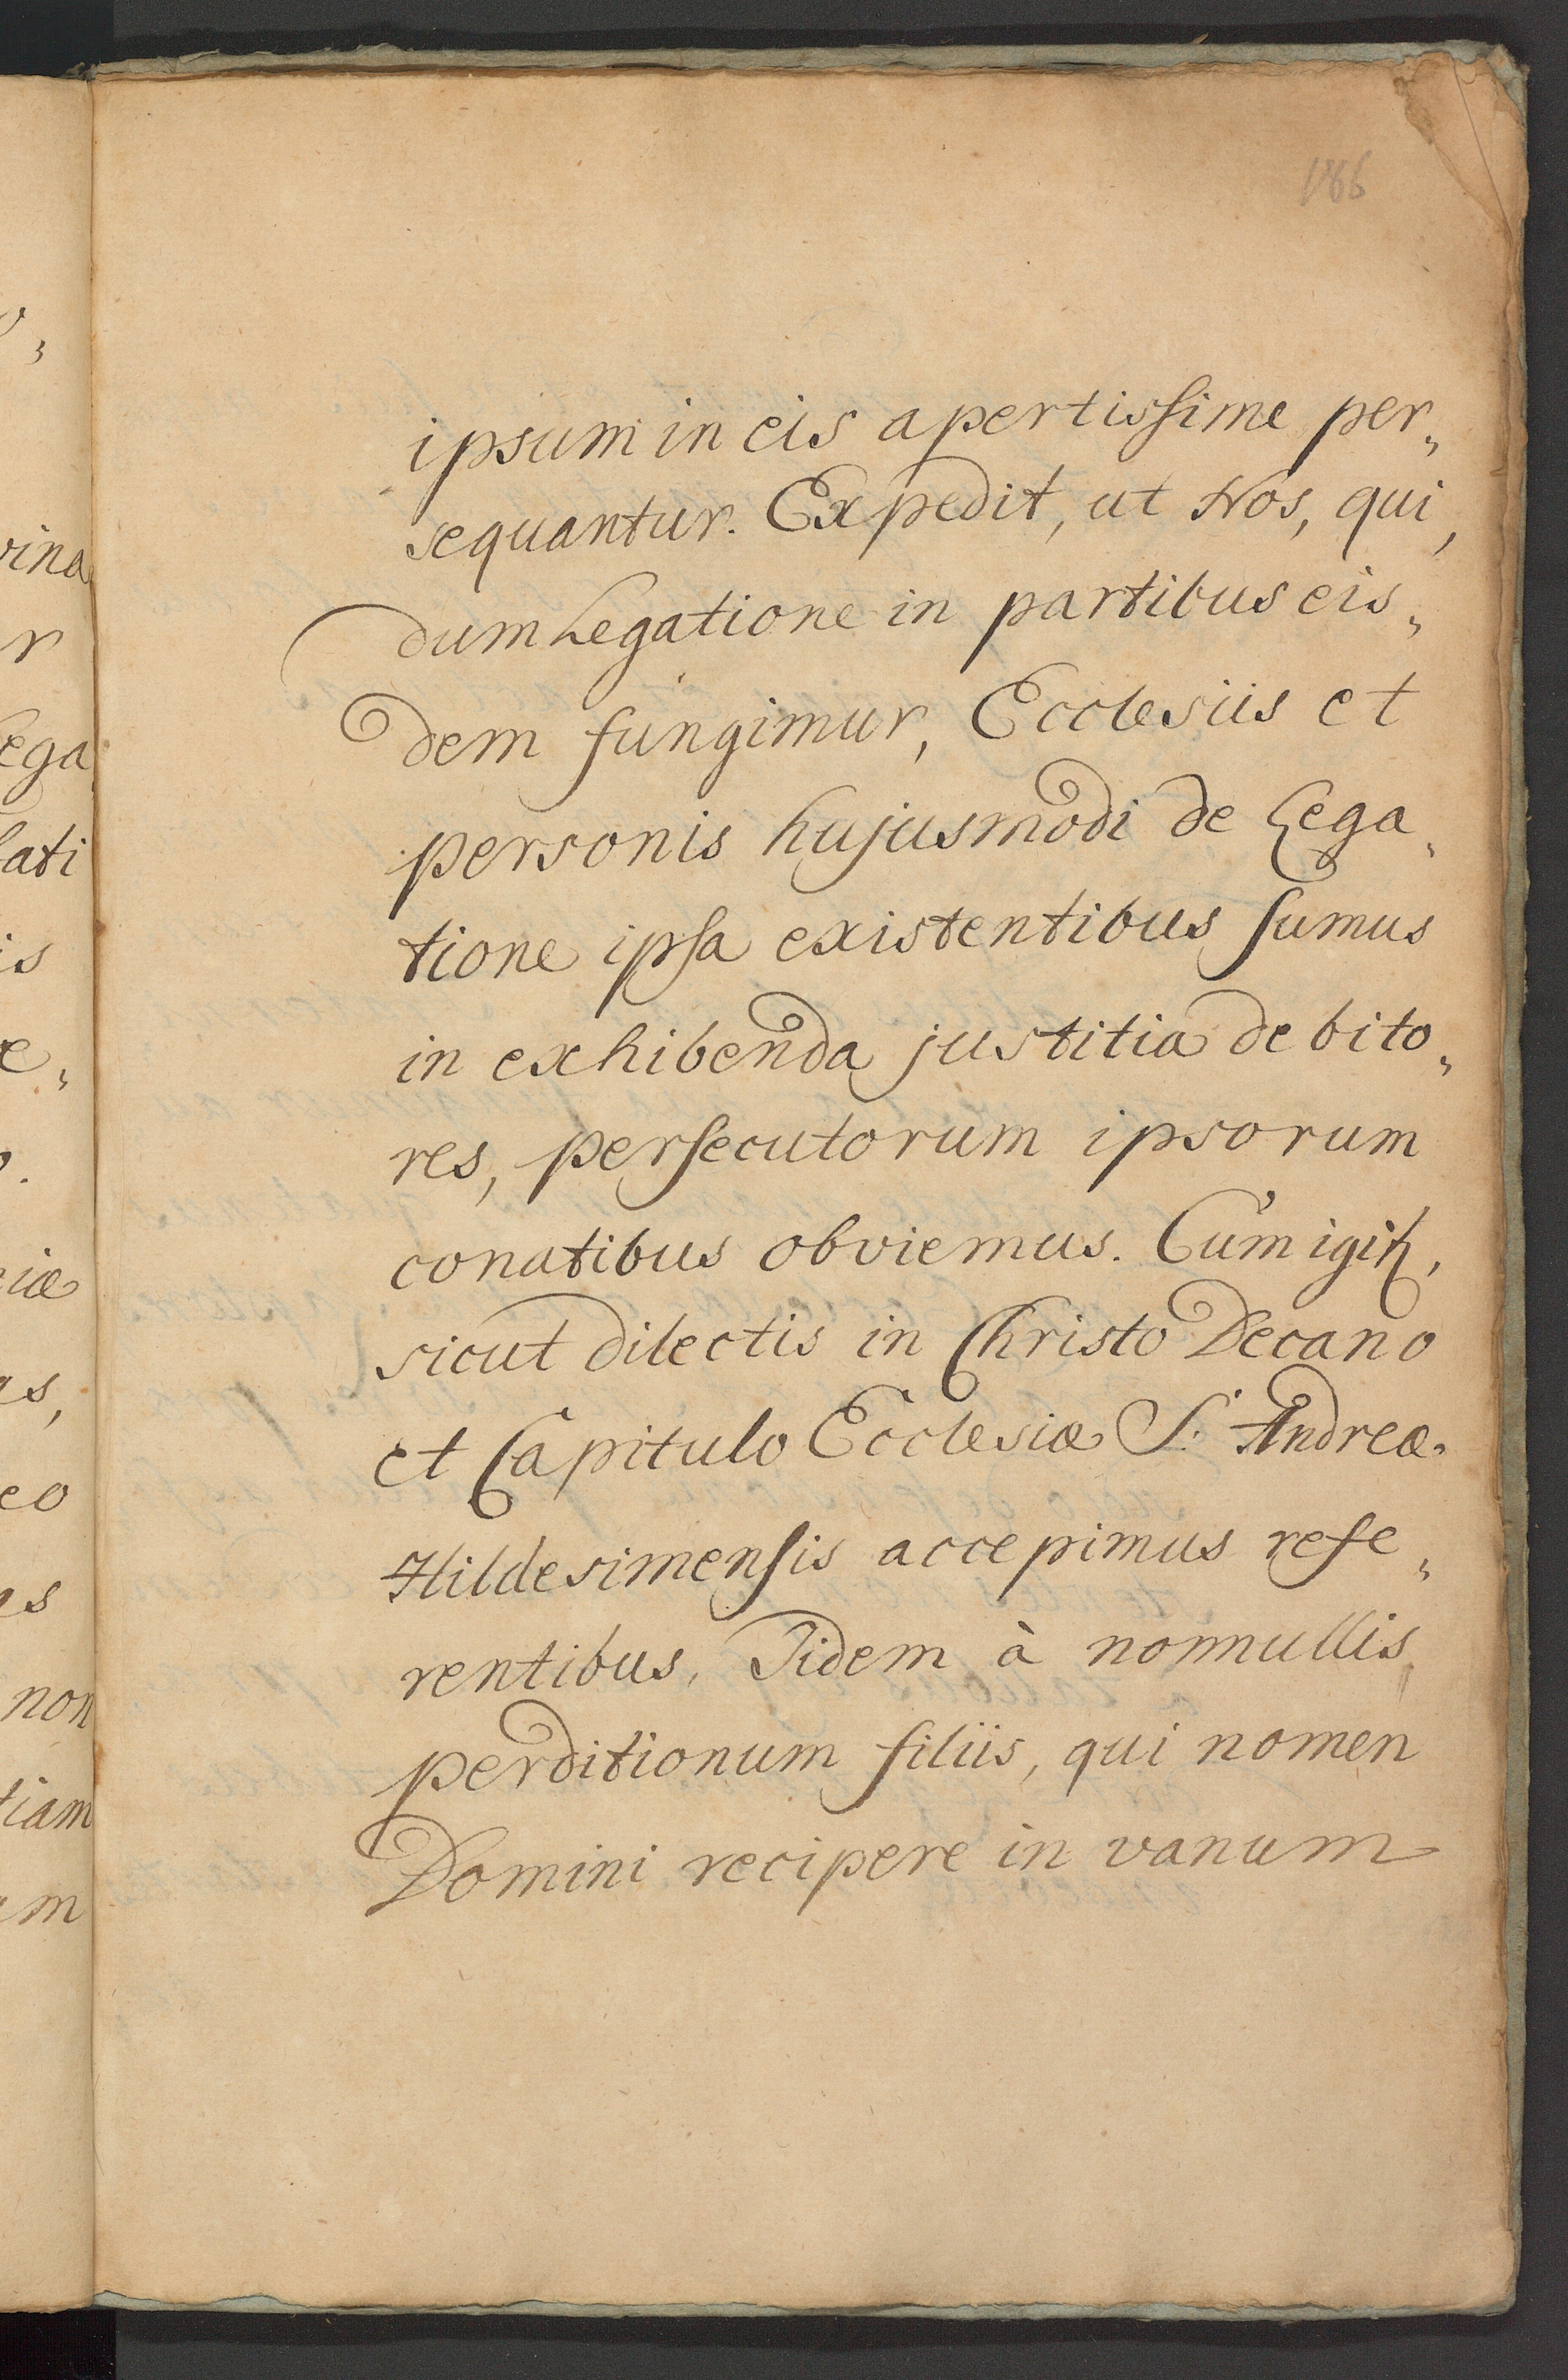 186
ipsum in eis apertissime per„
sequantur. Expedit, ut Nos, qui,
dum Legatione in partibus eis„
dem fungimur, Ecclesiis et
personis hujusmodi de Lega„
tione ipsa existentibus sumus
in exhibenda justitia debito„
res, persecutorum ipsorum
conatibus obviemus. Cùm igitꝛ,
sicut dilectis in Christo Decano
et Capitulo Ecclesiæ S. Andreæ
Hildesimensis accepimus refe„
rentibus, Iidem à nonnullis
perditionum filiis, qui nomen
Domini recipere in vanum